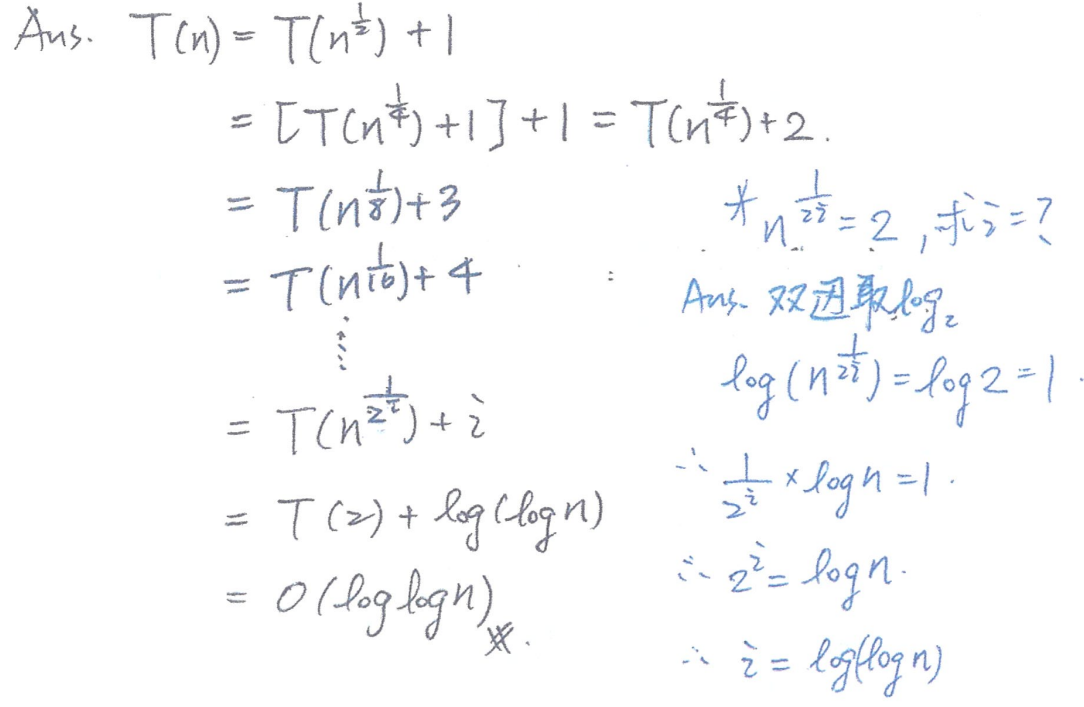 Ans. T(n) = T(n^{1/2}) + 1
= [T(n^{1/4}) + 1] + 1 = T(n^{1/4}) + 2.
= T(n^{1/8}) + 3
= T(n^{1/16}) + 4
⋮
= T(n^{1/2^i}) + i
= T(2) + log(log n)
= O(log log n) ※.
* n^{1/2^i} = 2, 求 i = ?
Ans. 双边取 log₂
log(n^{1/2^i}) = log 2 = 1.
∴ 1/2^i × log n = 1.
∴ 2^i = log n.
∴ i = log(log n)